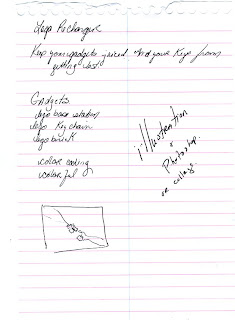 Lego Recharger
Keep your gadgets juiced And your Keys from
getting lost
Gadgets
lego base station
lego Keychain
lego brick
color coding
colorful
illustration
or
Photoshop.
or collage.